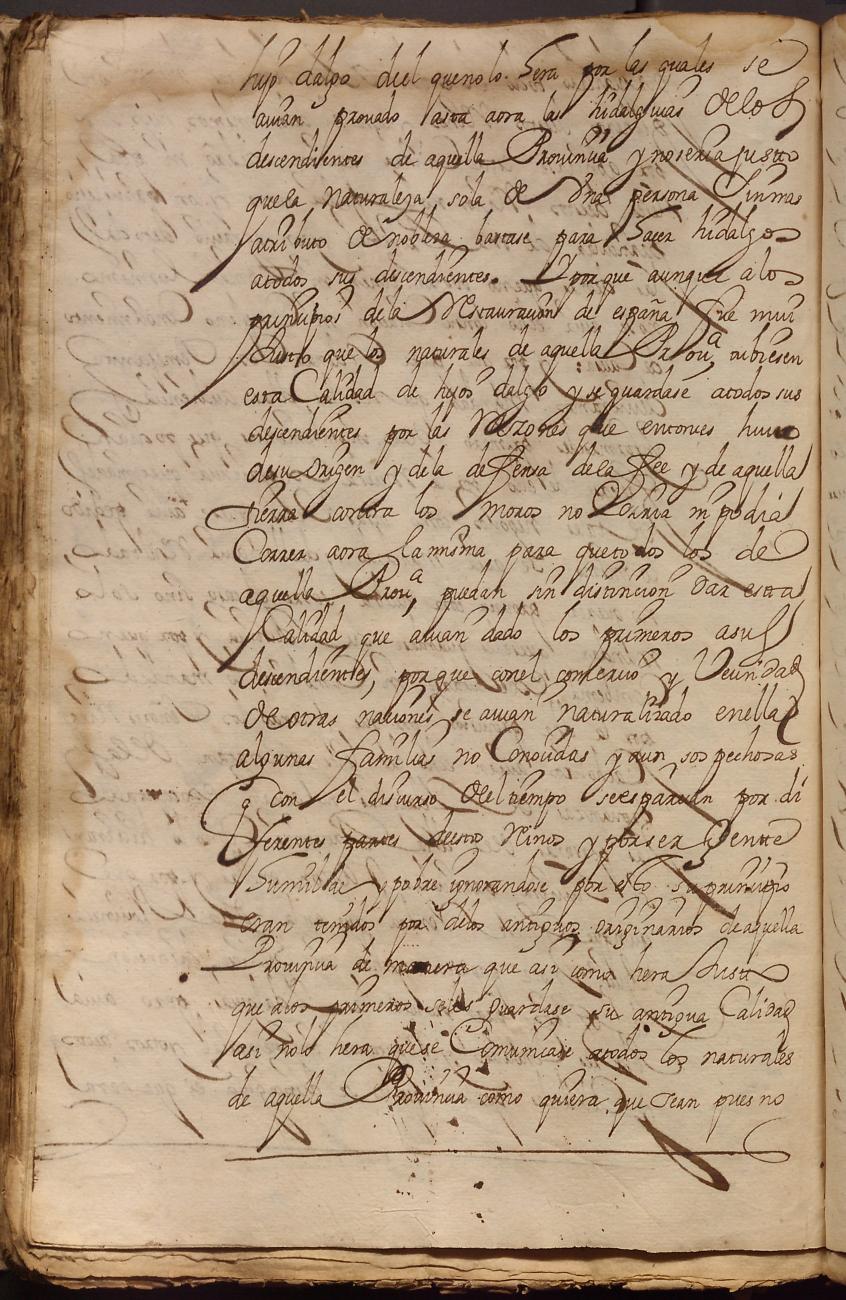 hijo dalgo deel que no lo sera por las quales se
auian prouado asta aora las hidalguias de los
descendientes de aquella Prouinçia y no seria justto
que la naturaleza sola de Vna persona sin mas
atributo de nobleza bastase para hacer hidalgos
a todos sus descendientes. Y porque aunque a los
prinçipios de la Restauraçion de españa fue mui
Justo que los naturales de aquella Prouª tubiesen
esta Calidad de hijos dalgo y se guardase a todos sus
descendientes por las Rezones que entonçes huuo
de su origen y de la defensa de la fee y de aquella
tierra contra los moros no Corria ni podia
Correr aora la misma para que todos los de
aquella Prouª puedan sin distincion dar estta
Calidad que auian dado los primeros a sus
descendientes, porque con el comerçio y Veçindad
de otras naçiones se auian naturalizado en ella
algunas familias no Conoçidas y aun sospechosas
q con el discurso del tiempo se esparçian por di
fferentes partes destos Reinos y por ser Gentte
humilde y pobre ignorandose por esto su prinçipio
eran tenidos por de los antiguos originarios de aquella
Prouinçia de manera que asi como hera Justo
que a los primeros se les guardase su antigua Calidad
asi no lo hera que se Comunicase a todos los naturales
de aquella Prouinçia como quiera que sean pues no